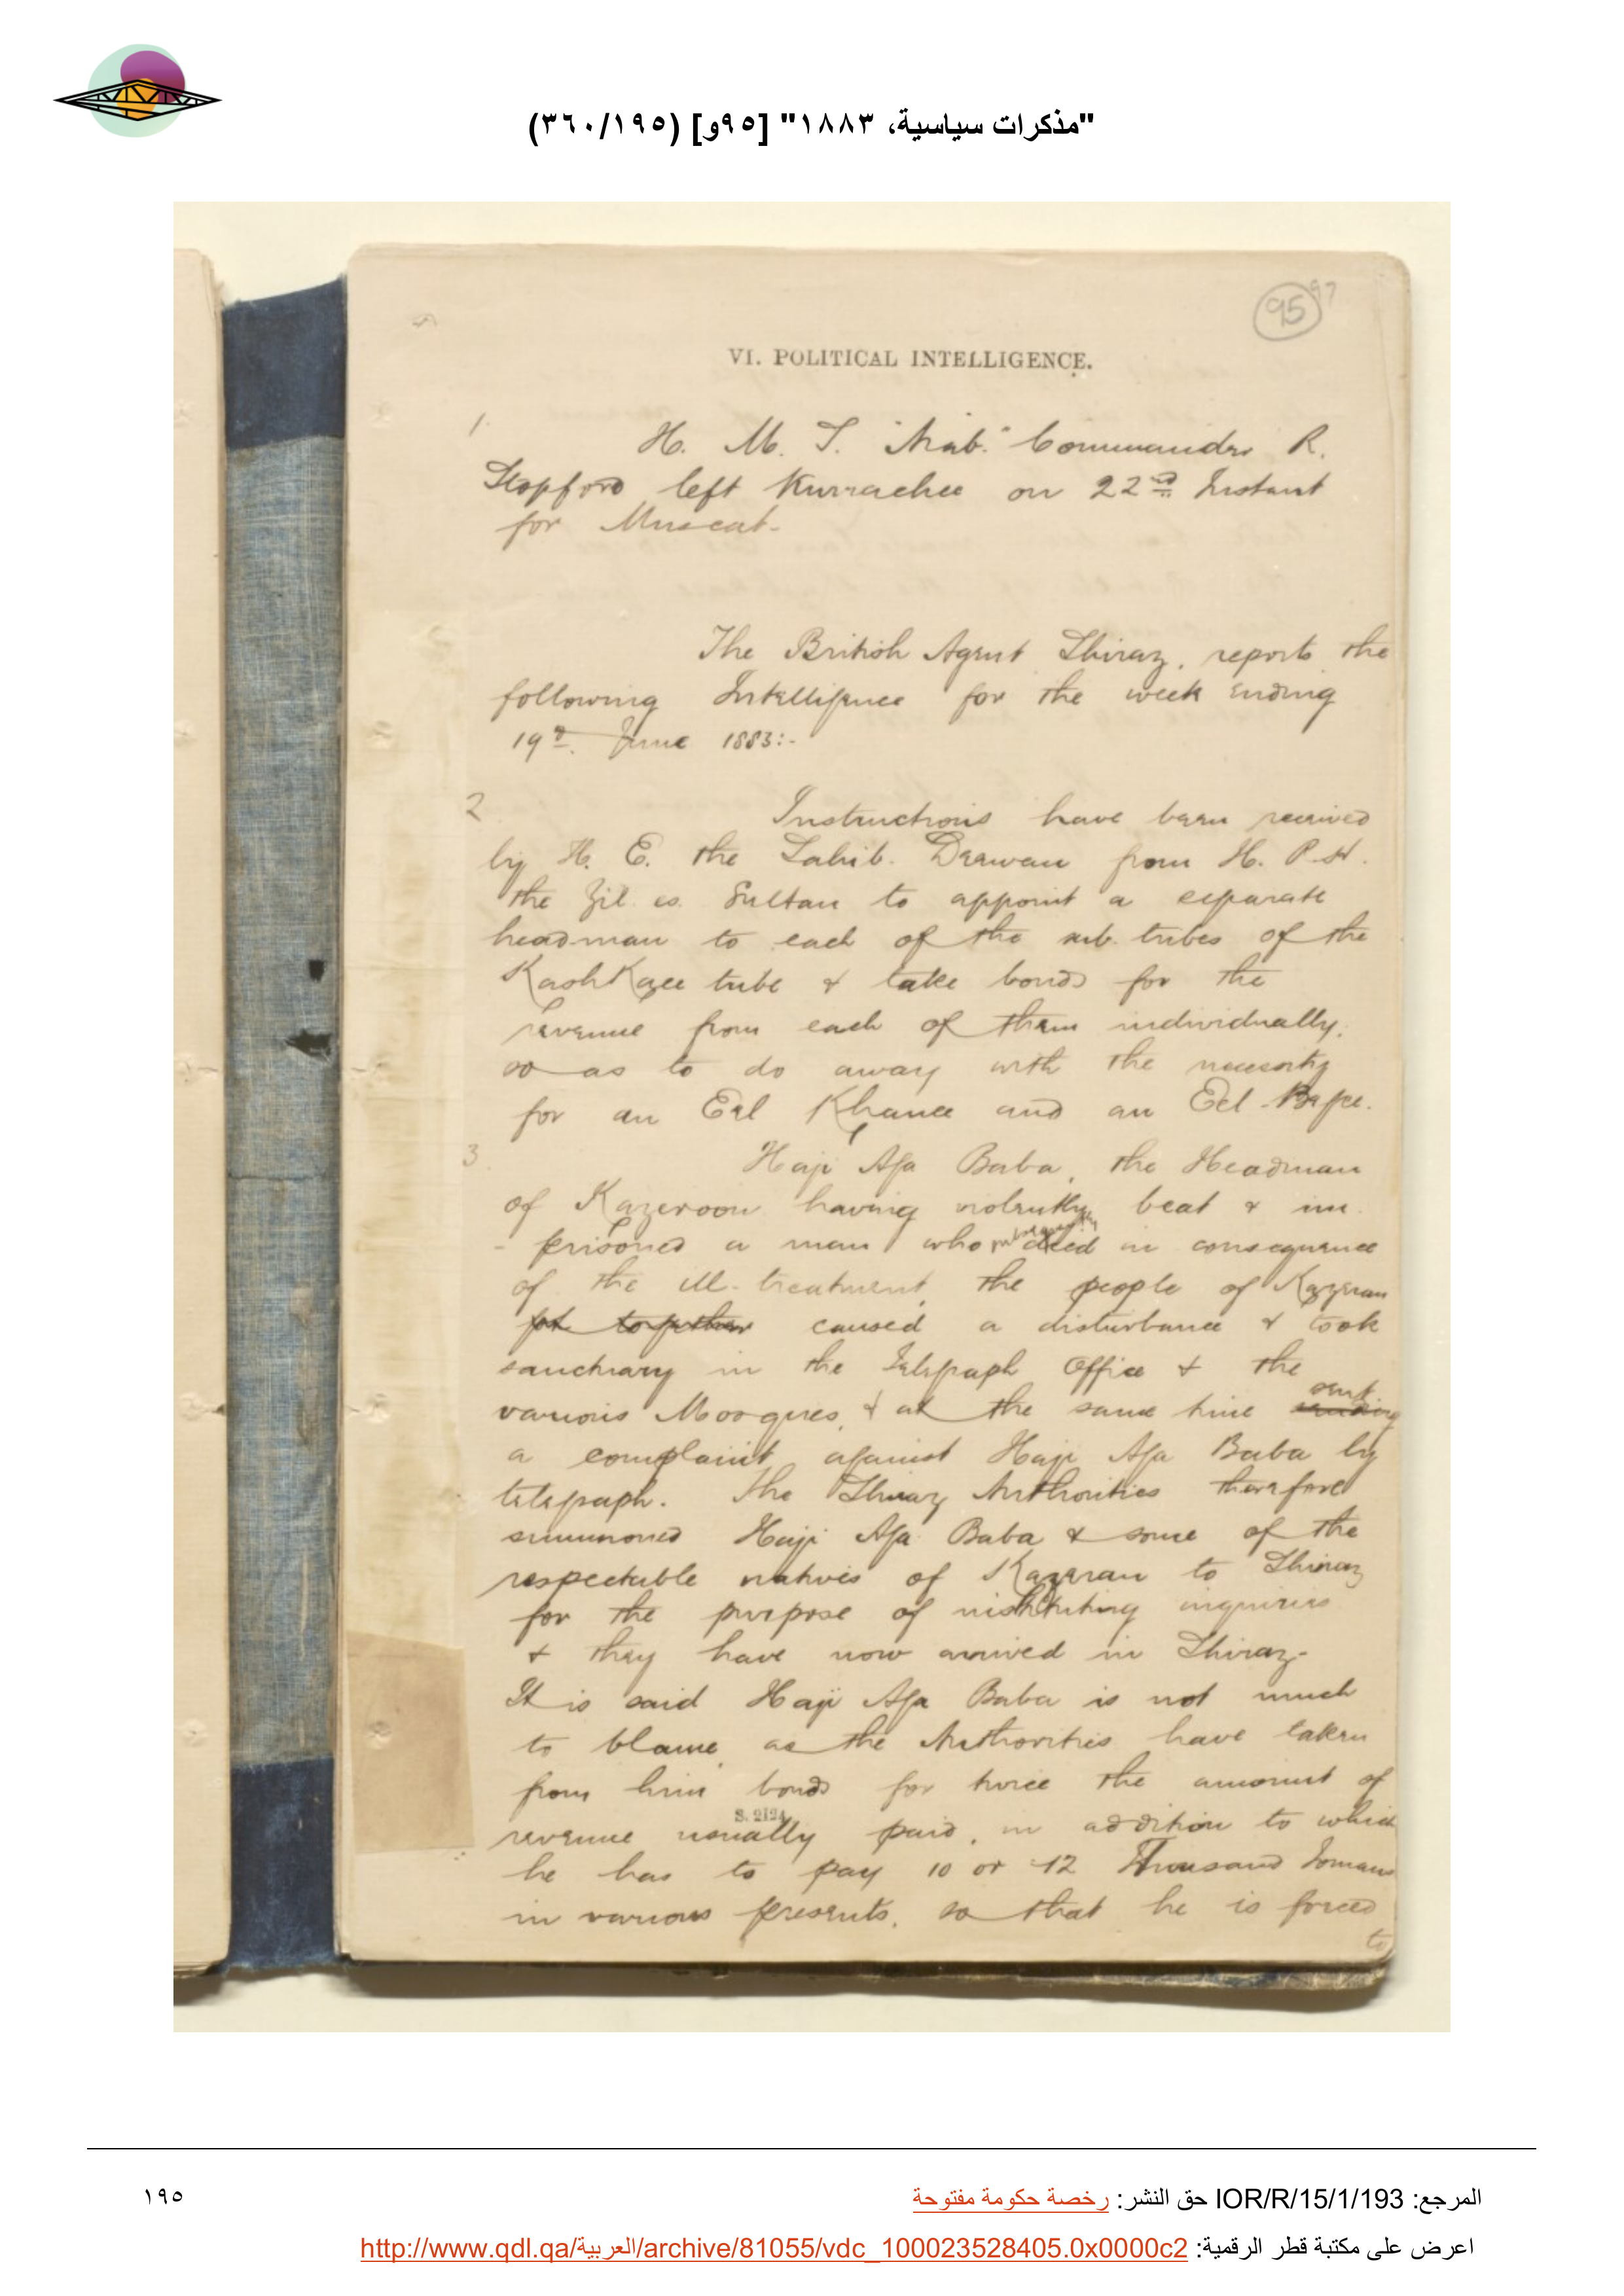 "مذكرات سياسية، ١٨٨٣" [٩٥و] (٣٦٠/١٩٥)
95 97
VI. POLITICAL INTELLIGENCE.
1.
H. M. S. "Arab." Commander R.
Stopford left Kurrachee on 22nd Instant
for Muscat.
The British Agent Shiraz, reports the
following Intelligence for the week ending
19th. June 1883:-
2
Instructions have been received
by H. E. the Sahib. Deewan from H. R. H.
the Zil. es. Sultan to appoint a separate
headman to each of the sub. tribes of the
KashKaee tribe & take bonds for the
revenue from each of them individually,
so as to do away with the necessity
for an Eel Khanee and an Eel-Begee.
3.
Haji Aga Baba, the Headman
of Kazeroon having violently beat & im
- prisoned a man who subsequently died in consequence
of the ill-treatment, the people of Kazeran
got together caused a disturbance & took
sanctuary in the Telegraph Office & the
various Mosques, & at the same time sending sent
a complaint against Haji Aga Baba by
telegraph. The Shiraz Authorities therefore
summoned Haji Aga Baba & some of the
respectable natives of Kazeran to Shiraz
for the purpose of instituting inquiries
& they have now arrived in Shiraz-
It is said Haji Aga Baba is not much
to blame, as the Authorities have taken
from him bonds for twice the amount of
S. 2124
revenue usually paid, in addition to which
he has to pay 10 or 12 Thousand Tomans
in various presents, so that he is forced
to
المرجع: IOR/R/15/1/193 حق النشر: رخصة حكومة مفتوحة
١٩٥
اعرض على مكتبة قطر الرقمية: http://www.qdl.qa/العربية/archive/81055/vdc_100023528405.0x0000c2